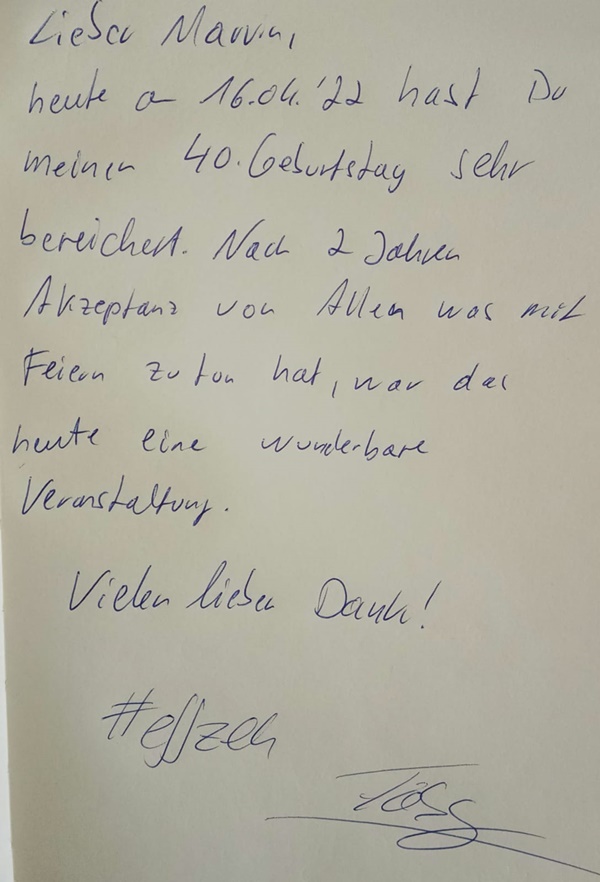 Lieber Marvin,
heute am 16.04.'22 hast Du
meinen 40. Geburtstag sehr
bereichert. Nach 2 Jahren
Akzeptanz von Allem was mit
Feiern zu tun hat, war das
heute eine wunderbare
Veranstaltung.
Vielen lieben Dank!
#effzeh